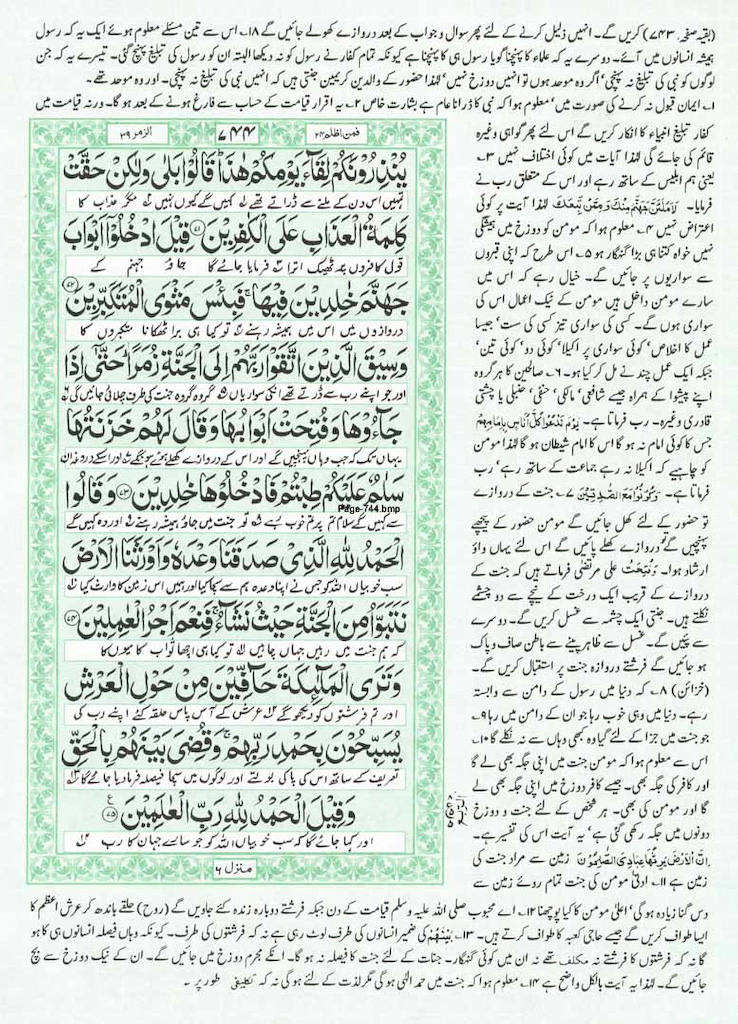 (بقیہ صفحہ ۷۴۳) کریں گے۔ انہیں ذلیل کرنے کے لئے پھر سوال و جواب کے بعد دروازے کھولے جائیں گے ۱۸۔ اس سے تین مسئلے معلوم ہوئے ایک یہ کہ رسول
ہمیشہ انسانوں میں آئے۔ دوسرے یہ کہ علماء کا پہنچنا گویا رسول ہی کا پہنچنا ہے کیونکہ تمام کفار نے رسول کو نہ دیکھا البتہ ان کو رسول کی تبلیغ پہنچ گئی۔ تیسرے یہ کہ جن
لوگوں کو نبی کی تبلیغ نہ پہنچی' اگر وہ موحد ہوں تو انہیں دوزخ نہیں' لہٰذا حضور کے والدین کریمین جنتی ہیں کہ انہیں نبی کی تبلیغ نہ پہنچی۔ اور وہ موحد تھے۔
۱۔ ایمان قبول نہ کرنے کی صورت میں' معلوم ہوا کہ نبی کا ڈرانا عام ہے بشارت خاص ۲۔ یہ اقرار قیامت کے حساب سے فارغ ہونے کے بعد ہو گا۔ ورنہ قیامت میں
کفار تبلیغ انبیاء کا انکار کریں گے اس لئے پھر گواہی وغیرہ
قائم کی جائے گی لہٰذا آیات میں کوئی اختلاف نہیں ۳۔
یعنی ہم ابلیس کے ساتھ رہے اور اس کے متعلق رب نے
فرمایا۔ لَاَمْلَئَنَّ جَهَنَّمَ مِنْكَ وَمِمَّنْ تَبِعَكَ لہٰذا آیت پر کوئی
اعتراض نہیں ۴۔ معلوم ہوا کہ مومن کو دوزخ میں ہمیشگی
نہیں خواہ کتنا ہی بڑا گنہگار ہو ۵۔ اس طرح کہ اپنی قبروں
سے سواریوں پر جائیں گے۔ خیال رہے کہ اس میں
سارے مومن داخل ہیں مومن کے نیک اعمال اس کی
سواری ہوں گے۔ کسی کی سواری تیز کسی کی ست' جیسا
عمل کا اخلاص' کوئی سواری پر اکیلا' کوئی دو' کوئی تین'
جبکہ ایک عمل چند نے مل کر کیا ہو۔ ۶۔ صالحین کا ہر گروہ
اپنے پیشوا کے ہمراہ جیسے شافعی' مالکی' حنفی' حنبلی یا چشتی
قادری وغیرہ۔ رب فرماتا ہے۔ يَوْمَ نَدْعُوْا كُلَّ اُنَاسٍ بِاِمَامِهِمْ
جس کا کوئی امام نہ ہو گا اس کا امام شیطان ہو گا لہٰذا مومن
کو چاہیے کہ اکیلا نہ رہے جماعت کے ساتھ رہے' رب
فرماتا ہے۔ وَكُوْنُوْا مَعَ الصّٰدِقِيْنَ ۷۔ جنت کے دروازے
تو حضور کے لئے کھل جائیں گے مومن حضور کے پیچھے
پہنچیں گے تو دروازے کھلے پائیں گے اس لئے یہاں واؤ
ارشاد ہوا۔ وَفُتِحَتْ علی مرتضیٰ فرماتے ہیں کہ جنت کے
دروازے کے قریب ایک درخت کے نیچے سے دو چشمے
نکلتے ہیں۔ جنتی ایک چشمہ سے غسل کریں گے۔ دوسرے
سے پئیں گے۔ غسل سے ظاہر پینے سے باطن صاف و پاک
ہو جائیں گے فرشتے دروازہ جنت پر استقبال کریں گے۔
(خزائن) ۸۔ کہ دنیا میں رسول کے دامن سے وابستہ
رہے۔ دنیا میں وہی خوب رہا جو ان کے دامن میں رہا ۹۔
جو جنت میں جزا کے لئے گیا وہ کبھی وہاں سے نہ نکلے گا ۱۰۔
اس سے معلوم ہوا کہ مومن جنت میں اپنی جگہ بھی لے گا
اور کافر کی جگہ بھی۔ جیسے کافر دوزخ میں اپنی جگہ بھی لے
گا اور مومن کی بھی۔ ہر شخص کے لئے جنت و دوزخ
دونوں میں جگہ رکھی گئی ہے' یہ آیت اس کی تفسیر ہے۔
اِنَّ الْاَرْضَ يَرِثُهَا عِبَادِيَ الصّٰلِحُوْنَ زمین سے مراد جنت کی
زمین ہے ۱۱۔ ادنیٰ مومن کی جنت تمام روئے زمین سے
فمن اظلم ۲۴
۷۴۴
الزمر ۳۹
يُنْذِرُوْنَكُمْ لِقَآءَ يَوْمِكُمْ هٰذَا ؕ قَالُوْا بَلٰى وَلٰكِنْ حَقَّتْ
تمہیں اس دن کے ملنے سے ڈراتے تھے کہیں گے کیوں نہیں مگر عذاب کا
كَلِمَةُ الْعَذَابِ عَلَى الْكٰفِرِيْنَ ۝۷۱ قِيْلَ ادْخُلُوْۤا اَبْوَابَ
قول کافروں پر ٹھیک اترا فرمایا جائے گا جاؤ جہنم کے
جَهَنَّمَ خٰلِدِيْنَ فِيْهَا ۚ فَبِئْسَ مَثْوَى الْمُتَكَبِّرِيْنَ ۝۷۲
دروازوں میں اس میں ہمیشہ رہنے تو کیا ہی برا ٹھکانا متکبروں کا
وَسِيْقَ الَّذِيْنَ اتَّقَوْا رَبَّهُمْ اِلَى الْجَنَّةِ زُمَرًا ؕ حَتّٰۤى اِذَا
اور جو اپنے رب سے ڈرتے تھے انکی سواریاں گروہ گروہ جنت کی طرف چلائی جائیں گی
جَآءُوْهَا وَفُتِحَتْ اَبْوَابُهَا وَقَالَ لَهُمْ خَزَنَتُهَا
یہاں تک کہ جب وہاں پہنچیں گے اور اس کے دروازے کھلے ہوئے ہونگے اور اسکے داروغہ ان
سَلٰمٌ عَلَيْكُمْ طِبْتُمْ فَادْخُلُوْهَا خٰلِدِيْنَ ۝۷۳ وَقَالُوا
Page-744.bmp
سے کہیں گے سلام تم پر تم خوب رہے تو جنت میں جاؤ ہمیشہ رہنے اور وہ کہیں گے
الْحَمْدُ لِلّٰهِ الَّذِيْ صَدَقَنَا وَعْدَهٗ وَاَوْرَثَنَا الْاَرْضَ
سب خوبیاں اللہ کو جس نے اپنا وعدہ ہم سے سچا کیا اور ہمیں اس زمین کا وارث کیا
نَتَبَوَّاُ مِنَ الْجَنَّةِ حَيْثُ نَشَآءُ ۚ فَنِعْمَ اَجْرُ الْعٰمِلِيْنَ ۝۷۴
کہ ہم جنت میں رہیں جہاں چاہیں تو کیا ہی اچھا ثواب کامیوں کا
وَتَرَى الْمَلٰٓئِكَةَ حَآفِّيْنَ مِنْ حَوْلِ الْعَرْشِ
اور تم فرشتوں کو دیکھو گے عرش کے آس پاس حلقہ کئے اپنے رب کی
يُسَبِّحُوْنَ بِحَمْدِ رَبِّهِمْ ۚ وَقُضِيَ بَيْنَهُمْ بِالْحَقِّ
تعریف کے ساتھ اس کی پاکی بولتے اور لوگوں میں سچا فیصلہ فرما دیا جائے گا
وَقِيْلَ الْحَمْدُ لِلّٰهِ رَبِّ الْعٰلَمِيْنَ ۝۷۵
اور کہا جائے گا کہ سب خوبیاں اللہ کو جو سارے جہان کا رب
منزل ۶
دس گنا زیادہ ہو گی' اعلیٰ مومن کا کیا پوچھنا ۱۲۔ اے محبوب صلی اللہ علیہ وسلم قیامت کے دن جبکہ فرشتے دوبارہ زندہ کئے جاویں گے (روح) حلقے باندھ کر عرش اعظم کا
ایسا طواف کریں گے جیسے حاجی کعبہ کا طواف کرتے ہیں۔ ۱۳۔ بَيْنَهُمْ کی ضمیر انسانوں کی طرف لوٹ رہی ہے نہ کہ فرشتوں کی طرف۔ کیونکہ وہاں فیصلہ انسانوں ہی کا ہو
گا نہ کہ فرشتوں کا فرشتے نہ مکلف تھے نہ ان میں کوئی گنہگار۔ جنات کے لئے جنت کا فیصلہ نہ ہو گا۔ انکے مجرم دوزخ میں جائیں گے۔ ان کے نیک دوزخ سے بچ
جائیں گے۔ لہٰذا یہ آیت بالکل واضح ہے ۱۴۔ معلوم ہوا کہ جنت میں حمد الٰہی ہو گی مگر لذت کے لئے ہو گی نہ کہ تکلیفی طور پر ۔